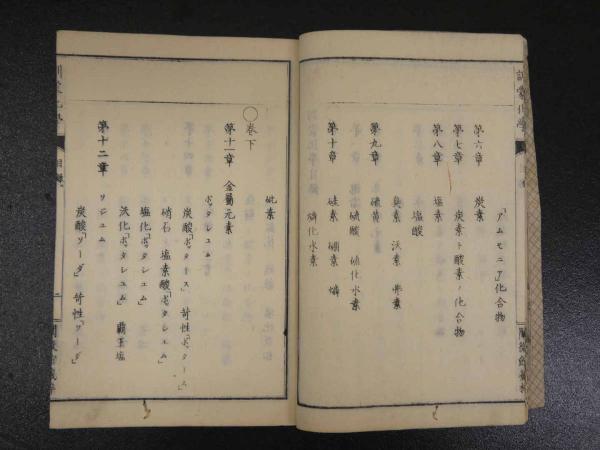 訓蒙化學
「アムモニア」化合物
第六章 炭素
第七章 炭素ト酸素ノ化合物
第八章 塩素
塩酸
臭素 沃素 弗素
第九章 硫黄
硫酸 硫化水素
第十章 硅素 硼素 燐
燐化水素
砒素
〇巻下
第十一章 金属元素
「ポッタシュム」
炭酸「ポッタース」 苛性「ポッタース」
硝石 塩素酸「ポッタシュム」
塩化「ポッタシュム」
沃化「ポッタシュム」 覇王塩
第十二章 ソジュム
炭酸「ソーダ」 苛性「ソーダ」
目録
二